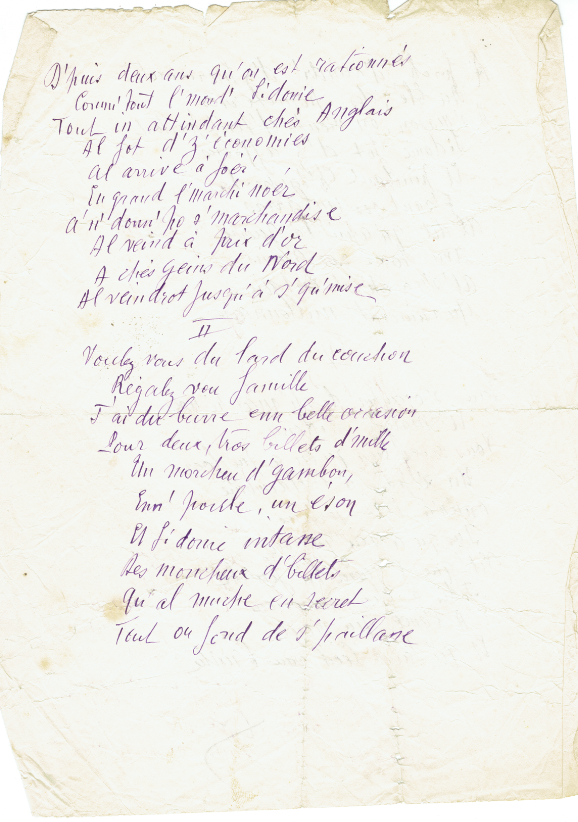 D'puis deux ans qu'on est rationnés
Comm' tout l'mond' Sidonie
Tout in attindant chés Anglais
Al fot d'z'économies
Al arrive à foér
En grand l'marchi noér
A n' donn' po s'marchandise
Al veind à prix d'or
A chés geins du Nord
Al veindrot jusqu'à s'qu'mise
II
Voulez vous du lard du couchon
Régalez vou famille
J'ai du burre enn belle occasion
Pour deux, tros billets d'mille
Un morcheu d'gambon,
Enn' poule, un éson
Et Sidonie intasse
Des moncheux d'billets
Qu'al muche en secret
Tout ou fond de s'paillasse